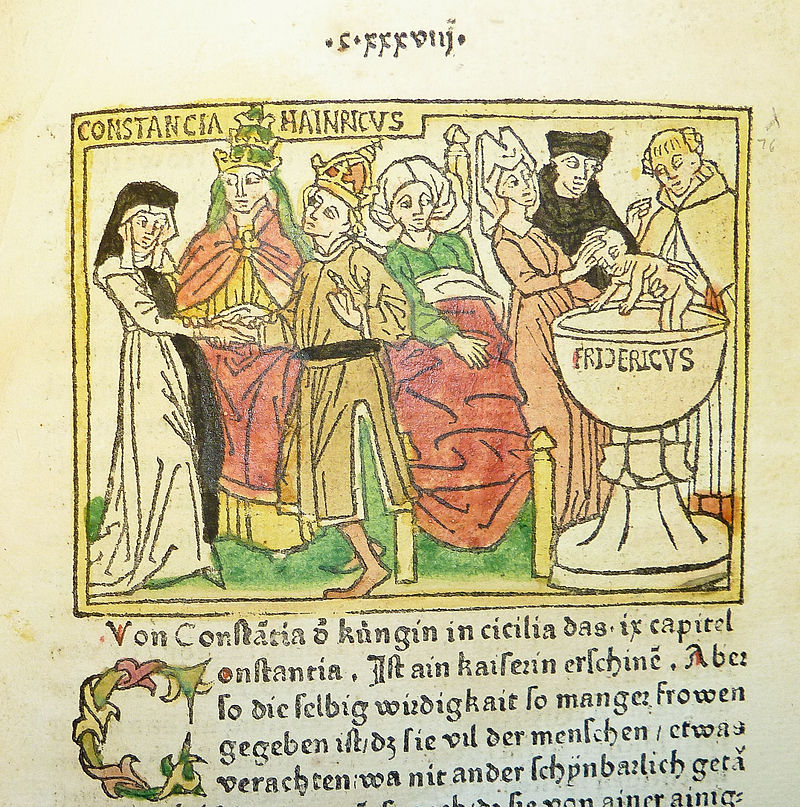 ·c·xxxviij̃·
CONSTANCIA HAINRICVS
FRIDERICVS
Von Constãtia ð küngin in cicilia das· ix capitel
Constantia . Ist ain kaiserin erschinẽ . Aber
so die selbig wirdigkait so manger frowen
gegeben ist/dz sie vil der menschen / etwas
verachten/wa nit ander schÿnbarlich getã
sie von ainer ainig-